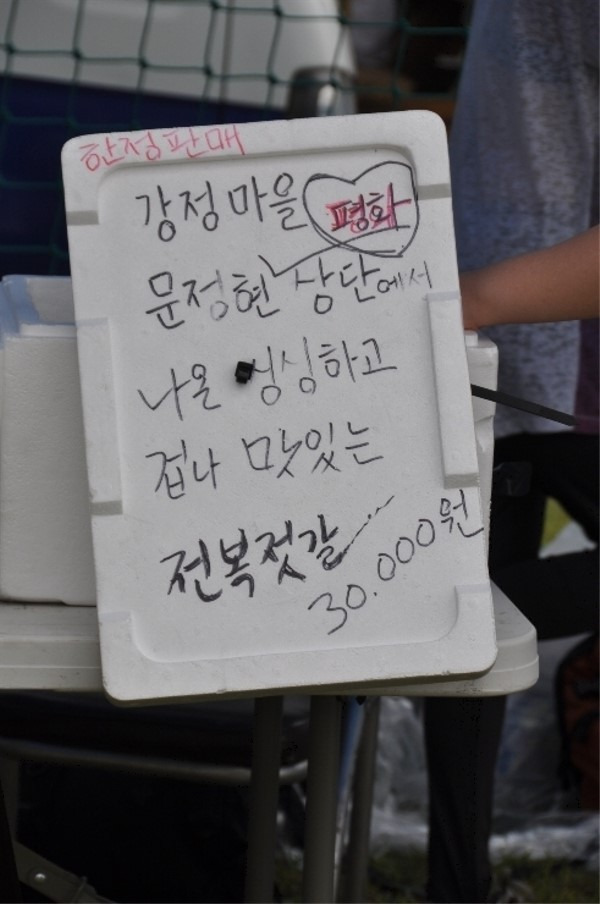 한정판매
강정마을 평화
문정현 상단에서
나온 싱싱하고
겁나 맛있는
전복젓갈
30.000원